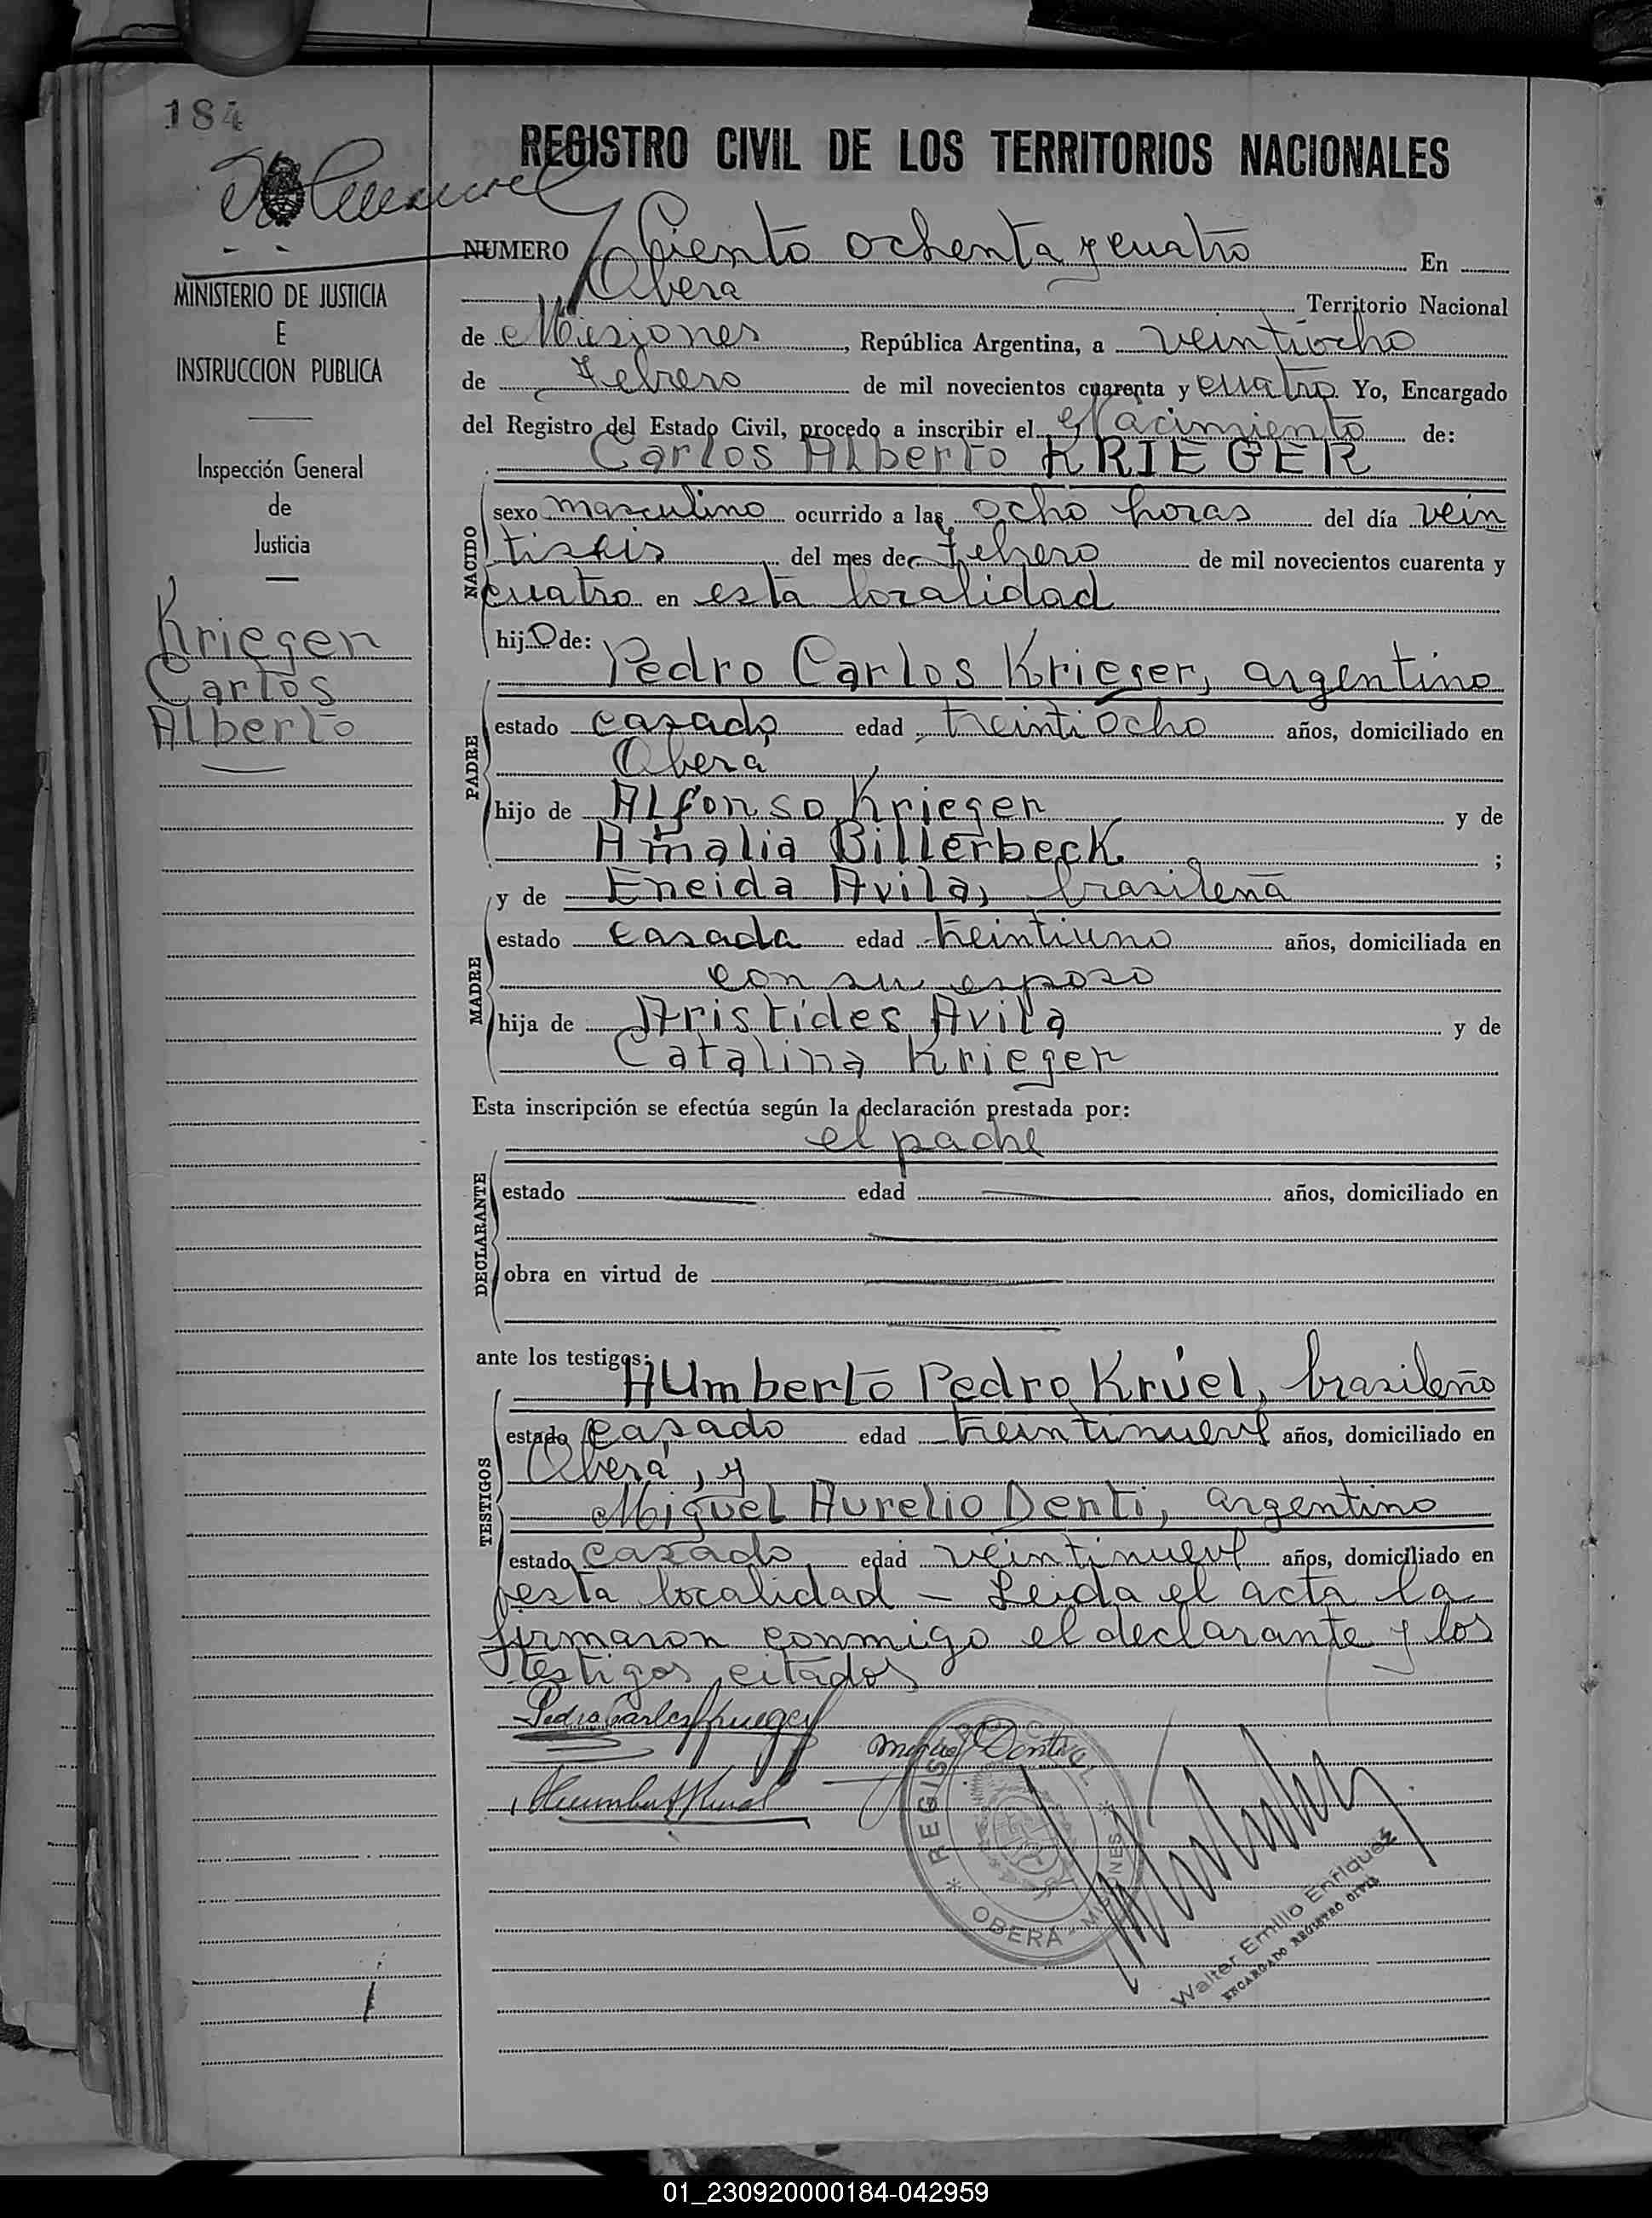 184
REGISTRO CIVIL DE LOS TERRITORIOS NACIONALES
NUMERO Ciento ochenta y cuatro En
Oberá Territorio Nacional
de Misiones, República Argentina, a veintiocho
de Febrero de mil novecientos cuarenta y cuatro. Yo, Encargado
del Registro del Estado Civil, procedo a inscribir el Nacimiento de:
Carlos Alberto KRIEGER
MINISTERIO DE JUSTICIA
E
INSTRUCCION PUBLICA
Inspección General
de
Justicia
Krieger
Carlos
Alberto
NACIDO
sexo masculino ocurrido a las ocho horas del día vein
tiseis del mes de Febrero de mil novecientos cuarenta y
cuatro en esta localidad
hijo de:
Pedro Carlos Krieger, argentino
PADRE
estado casado edad treintiocho años, domiciliado en
Oberá
hijo de Alfonso Krieger y de
Amalia Billerbeck ;
y de Eneida Avila, brasileña
MADRE
estado casada edad treintiuno años, domiciliada en
con su esposo
hija de Aristides Avila y de
Catalina Krieger
Esta inscripción se efectúa según la declaración prestada por:
el padre
DECLARANTE
estado edad años, domiciliado en
obra en virtud de
ante los testigos:
Humberto Pedro Krüel, brasileño
TESTIGOS
estado casado edad treintinueve años, domiciliado en
Oberá, y
Miguel Aurelio Denti, argentino
estado casado edad veintinueve años, domiciliado en
esta localidad — Leida el acta la
firmaron conmigo el declarante y los
testigos citados
Pedro Carlos Krieger
Miguel Denti
Humberto Kruel
REGISTRO CIVIL
* OBERA - MISIONES *
Walter Emilio Enriquez
ENCARGADO REGISTRO CIVIL
01_230920000184-042959